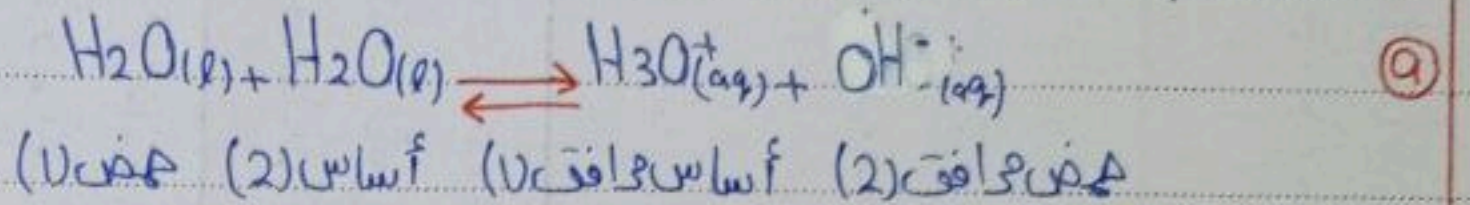 H2O(l) + H2O(l) ⇌ H3O+(aq) + OH-(aq) (a)
حمض(1) أساس(2) أساس مرافق(1) حمض مرافق(2)